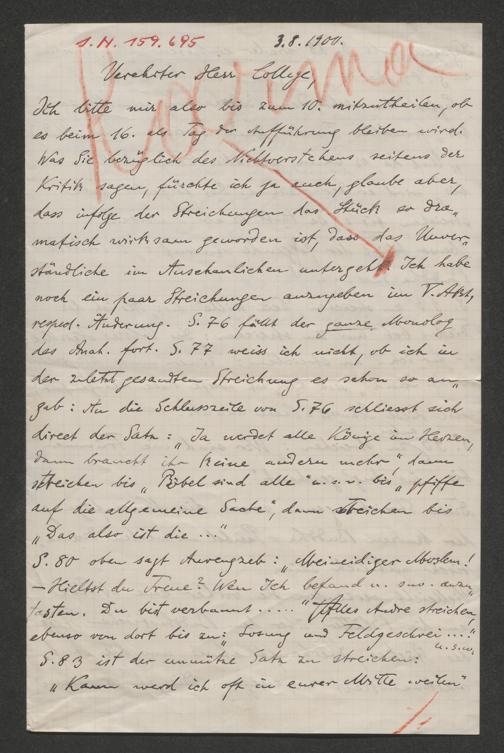 J.N. 159.695
3.8.1901.
Verehrter Herr College,
Ich bitte mir also bis zum 10. mitzutheilen, ob
es beim 16. als Tag der Aufführung bleiben wird.
Was Sie bezüglich des Nichtverstehens seitens der
Kritik sagen, fürchte ich ja auch, glaube aber,
dass infolge der Streichungen das Stück so dra„
matisch wirksam geworden ist, dass das Unver„
ständliche im Anschaulichen untergeht. Ich habe
noch ein paar Streichungen anzugeben im V. Akt,
resped. Änderung. S. 76 fällt der ganze Monolog
des Anah. fort. S. 77 weiss ich nicht, ob ich in
der zuletzt gesandten Streichung es schon so an„
gab: An die Schlusszeile von S. 76 schliesst sich
direct der Satz: „Ja werdet alle Könige im Herzen,
dann braucht ihr keine andern mehr", dann
streichen bis „Pöbel sind alle" u.s.w. bis „pfiffe
auf die allgemeine Sache", dann streichen bis
„Das also ist die ..."
S. 80 oben sagt Aurengzeb: „Meineidiger Moslem!
– Hieltst du Treue? Wen Ich befand u. s.w. anzu„
tasten. Du bist verbannt ....." Alles Andre streichen,
ebenso von dort bis zu: „Losung und Feldgeschrei ...."
u.s.w.
S. 83 ist der unnütze Satz zu streichen:
„Kaum werd ich oft in eurer Mitte weilen"